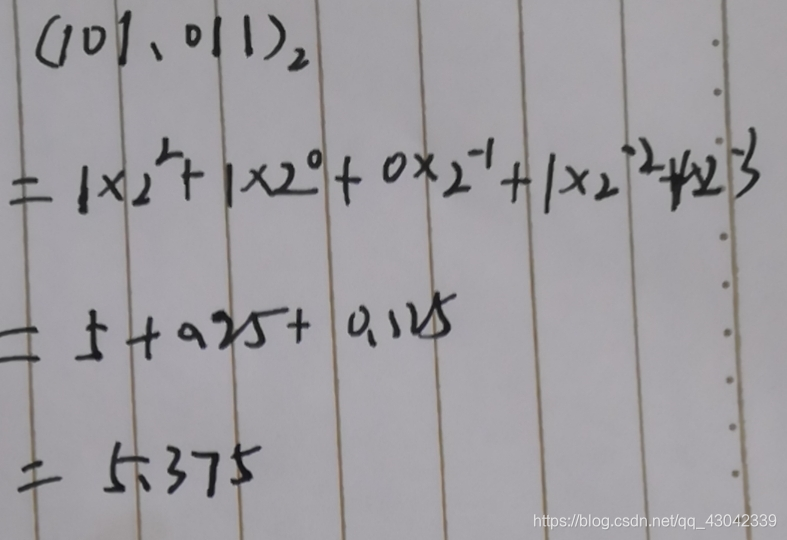 (101、011)₂
= 1×2² + 1×2⁰ + 0×2⁻¹ + 1×2⁻² + 1×2⁻³
= 5 + 0.25 + 0.125
= 5.375
https://blog.csdn.net/qq_43042339